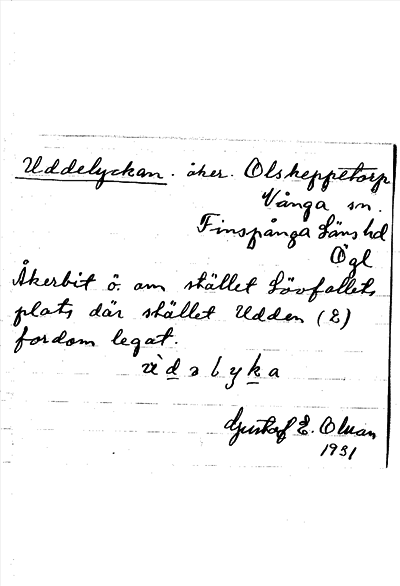 Uddelyckan. åker. Olskeppetorp
Vånga sn.
Finspånga Läns hd
Ögl
Åkerbit ö. om stället Lövfallets
plats där stället Udden (2)
fordom legat.
ùdəlyka
Gustaf E. Olsson
1931